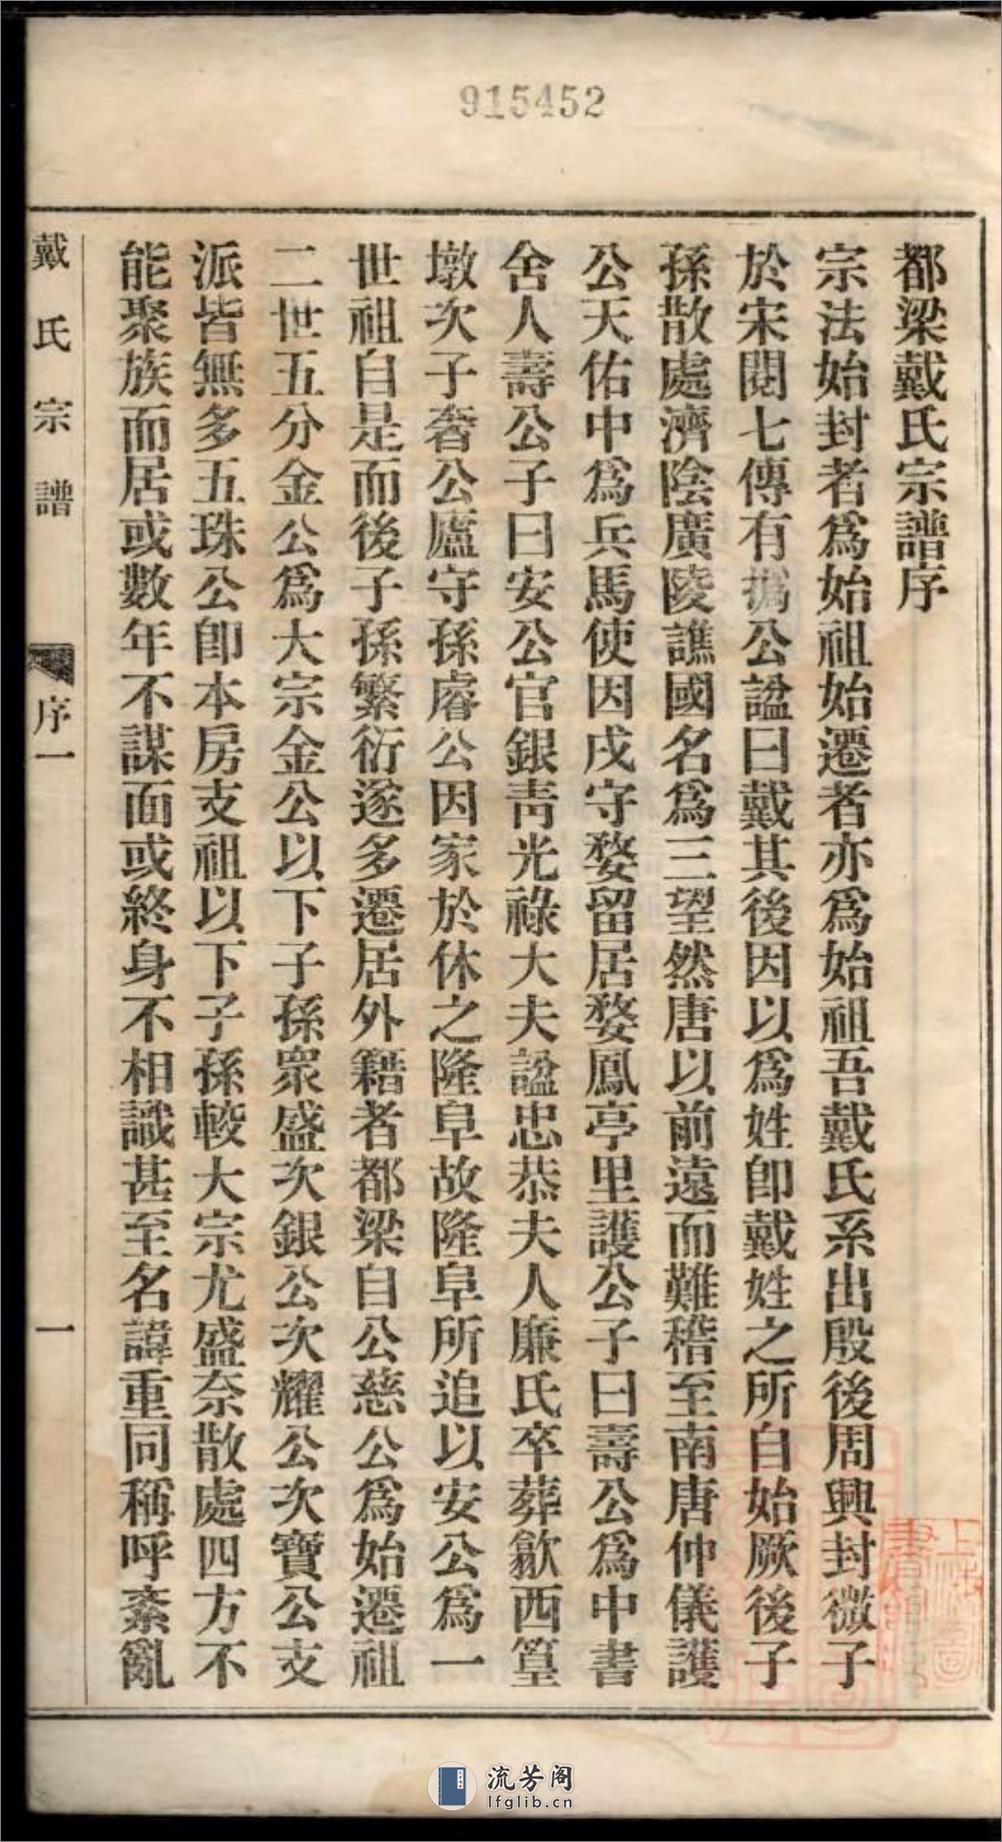 915452
都梁戴氏宗譜序
宗法始封者爲始祖始遷者亦爲始祖吾戴氏系出殷後周興封微子
於宋閱七傳有撝公諡曰戴其後因以爲姓卽戴姓之所自始厥後子
孫散處濟陰廣陵譙國名爲三望然唐以前遠而難稽至南唐仲儀護
公天佑中爲兵馬使因戍守婺留居婺鳳亭里護公子曰壽公爲中書
舍人壽公子曰安公官銀靑光祿大夫諡忠恭夫人廉氏卒葬歙西篁
墩次子奢公廬守孫睿公因家於休之隆阜故隆阜所追以安公爲一
世祖自是而後子孫繁衍遂多遷居外籍者都梁自公慈公爲始遷祖
二世五分金公爲大宗金公以下子孫衆盛次銀公次耀公次寶公支
派皆無多五珠公卽本房支祖以下子孫較大宗尤盛奈散處四方不
能聚族而居或數年不謀面或終身不相識甚至名諱重同稱呼紊亂
戴氏宗譜
序一
一
流芳阁
lfglib.cn